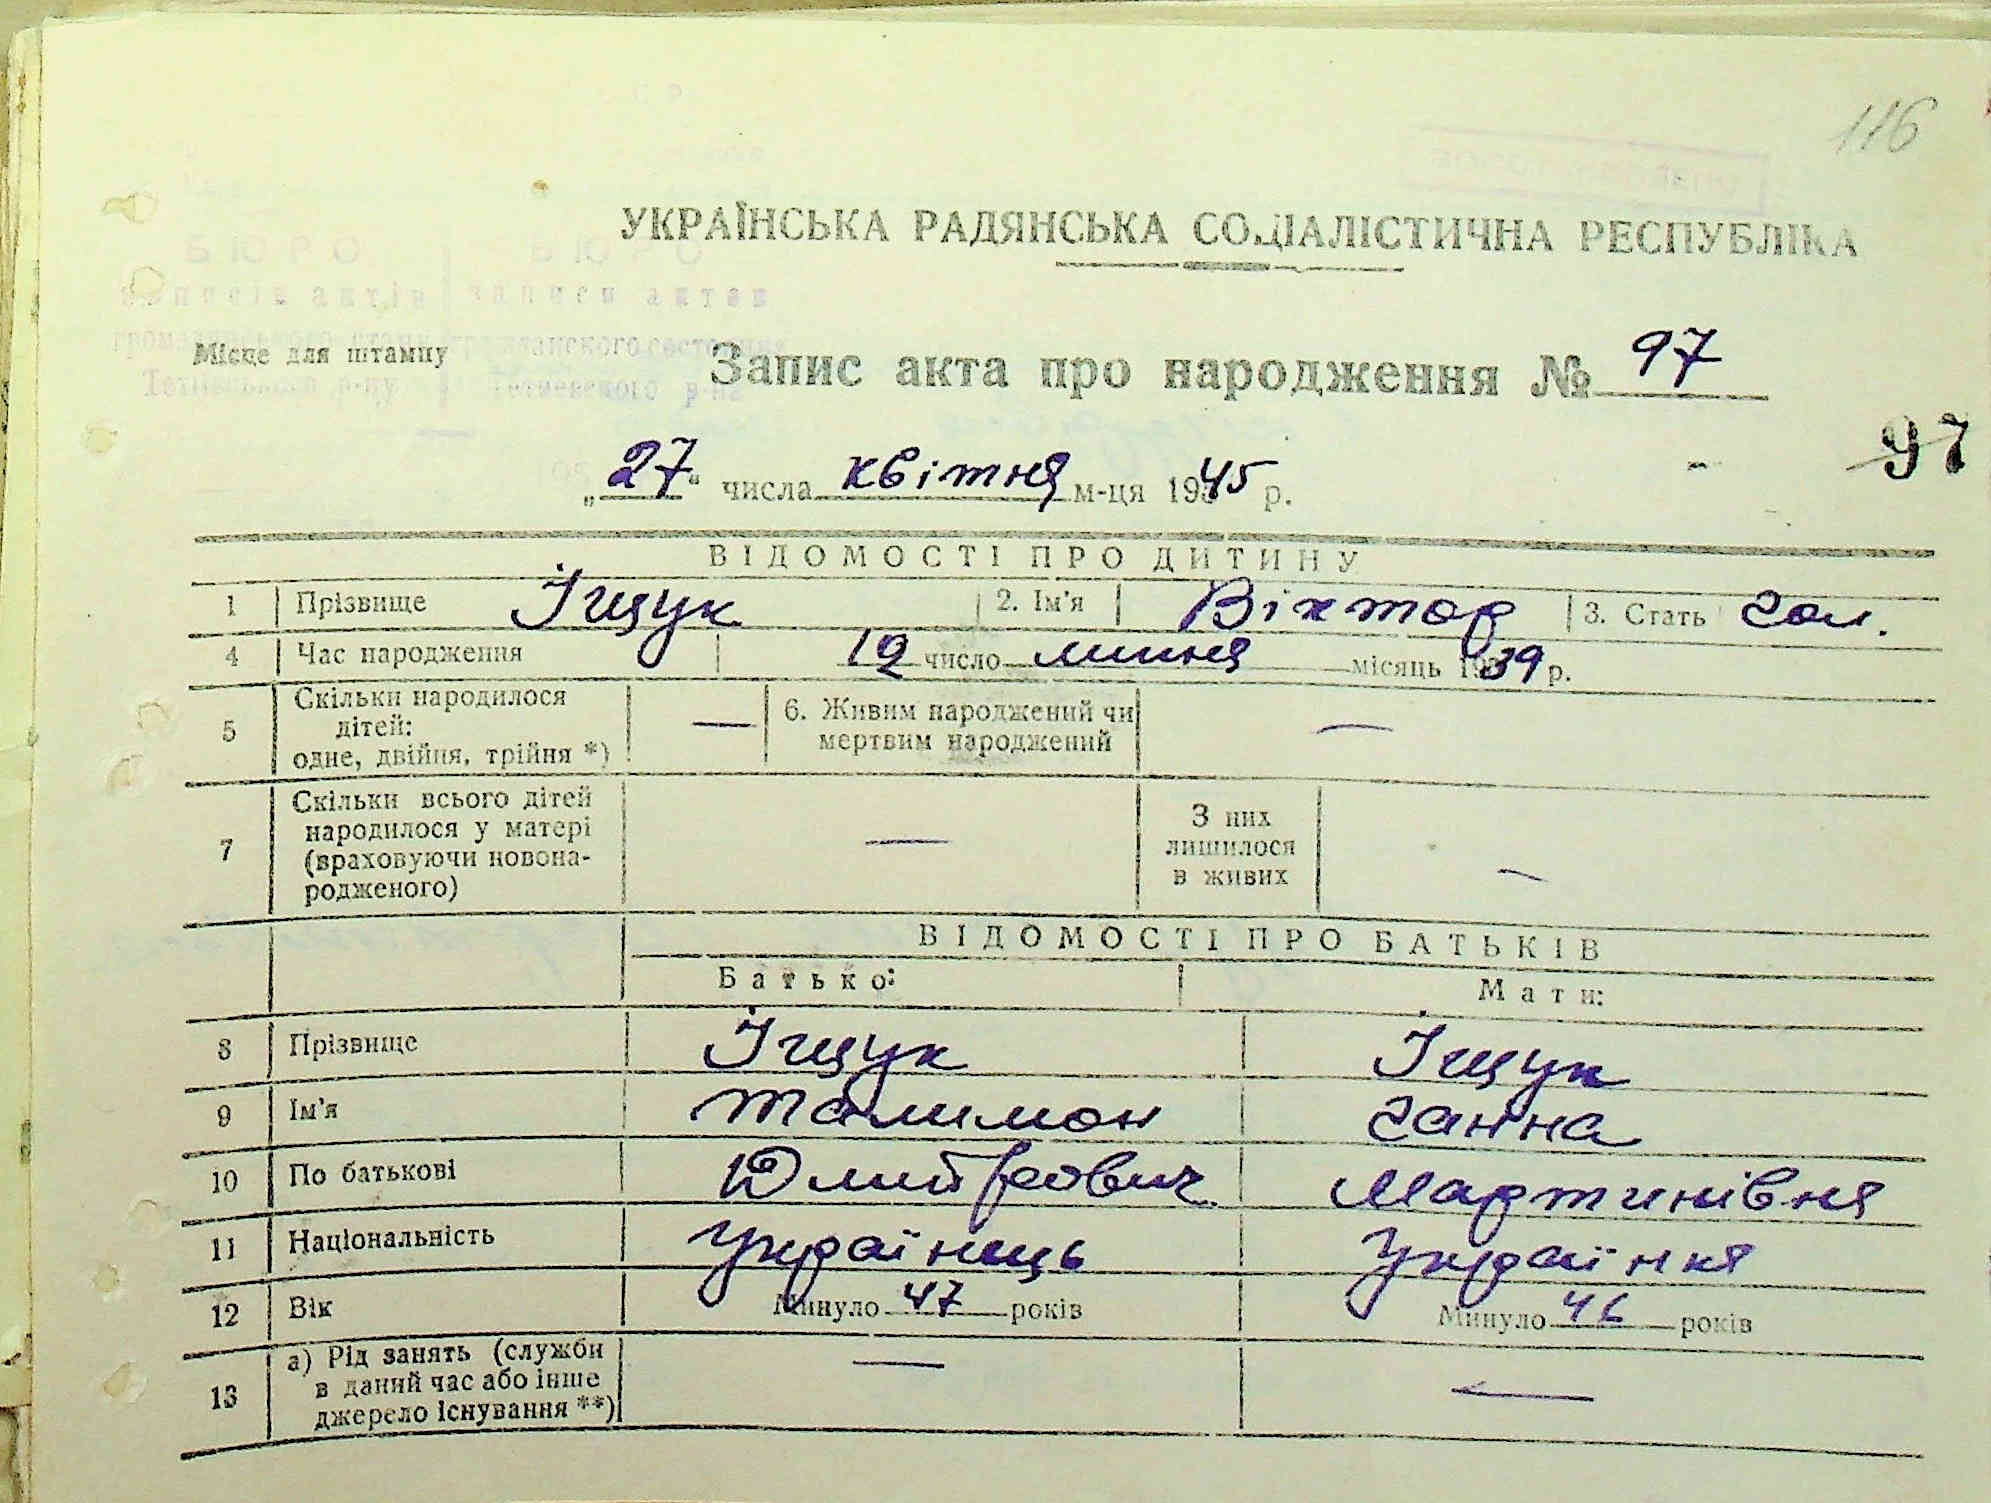 116
УКРАЇНСЬКА РАДЯНСЬКА СОЦІАЛІСТИЧНА РЕСПУБЛІКА
Місце для штампу
Запис акта про народження № 97
97
„27“ числа квітня м-ця 1945 р.
ВІДОМОСТІ ПРО ДИТИНУ
1 Прізвище Іщук 2. Ім'я Віктор 3. Стать чол.
4 Час народження 12 число липня місяць 1939 р.
5 Скільки народилося дітей: одне, двійня, трійня *) — 6. Живим народжений чи мертвим народжений —
7 Скільки всього дітей народилося у матері (враховуючи новона-родженого) — З них лишилося в живих —
ВІДОМОСТІ ПРО БАТЬКІВ
Батько: Мати:
8 Прізвище Іщук Іщук
9 Ім'я Талимон Ганна
10 По батькові Дмитрович Мартинівна
11 Національність Українець Українка
12 Вік Минуло 47 років Минуло 46 років
13 а) Рід занять (служби в даний час або інше джерело існування **) — —